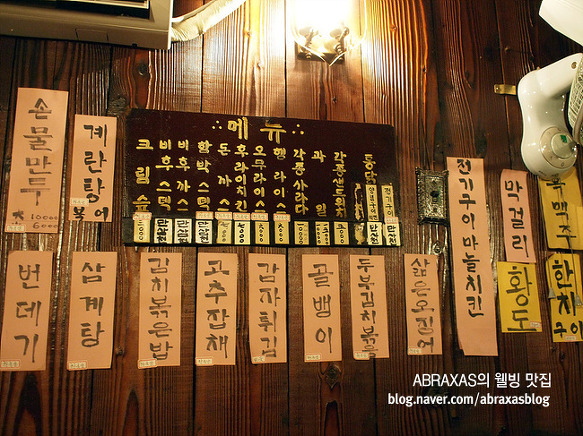 손물만두
大 10000
6000
계란탕
북어
메뉴
크림숲
비후스텍
비후까스
함박스텍
돈까스
후라이치킨
오무라이스
햄라이스
각종사라다
과일
각종샌드위치
통닭
전기구이마늘치킨
막걸리
흑맥주
번데기
삼계탕
김치볶은밥
고추잡채
감자튀김
골뱅이
두부김치볶음
삶은오징어
황도
한치구이
ABRAXAS의 웰빙 맛집
blog.naver.com/abraxasblog